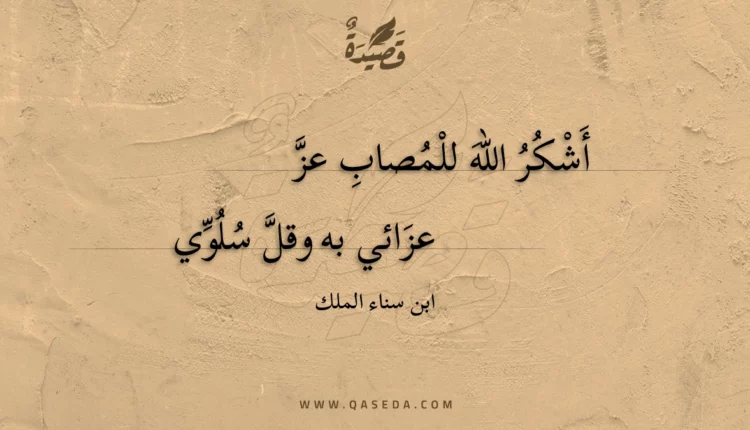 قَصِيدَةٌ
أَشْكُرُ اللهَ للْمُصابِ عزَّ
عزَائي به وقلَّ سُلُوِّي
ابن سناء الملك
WWW.QASEDA.COM